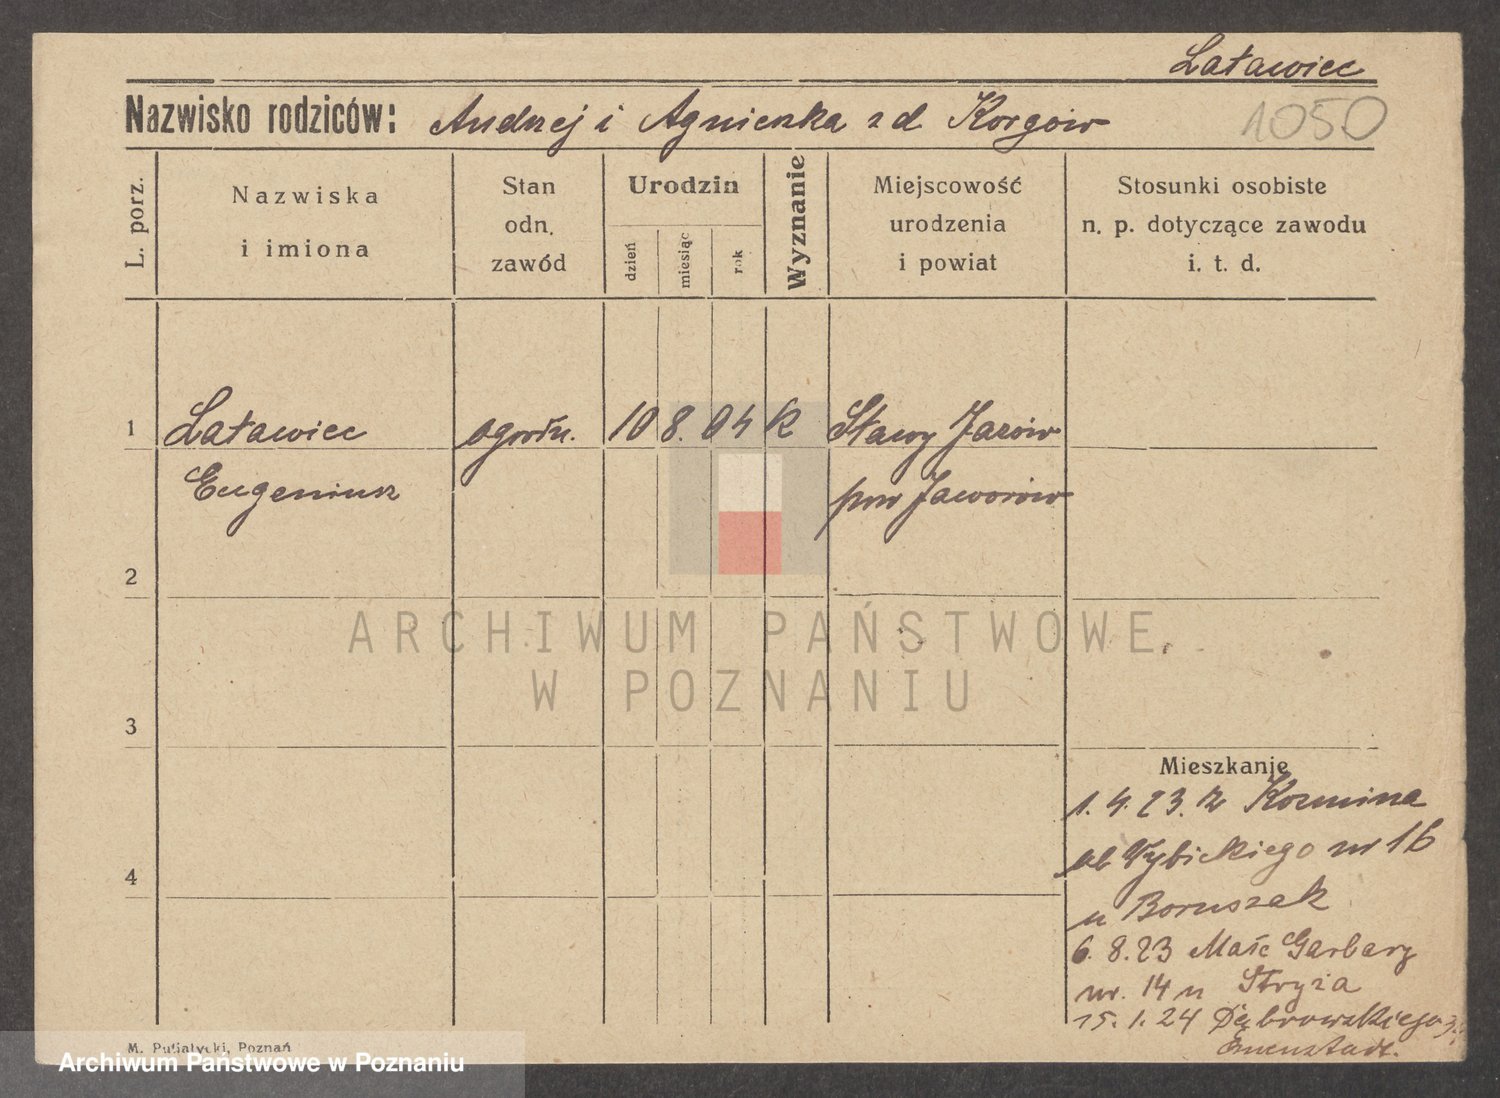 Latawiec
Nazwisko rodziców: Andrzej i Agnieszka z d Korgów 1050
L. porz.
Nazwiska
i imiona
Stan
odn.
zawód
Urodzin
dzień
miesiąc
rok
Wyznanie
Miejscowość
urodzenia
i powiat
Stosunki osobiste
n. p. dotyczące zawodu
i. t. d.
1 Latawiec ogrodn. 10 8. 04 k Stawy Jazów
Eugeniusz pow Jaworów
2
ARCHIWUM PAŃSTWOWE
W POZNANIU
3
Mieszkanie
1. 4. 23. z Kozmina
ul Wybickiego nr 16
4
u Boruszak
6. 8. 23 Małe Garbary
nr. 14 u Stryza
15. 1. 24 Dąbrowskiego
M. Putiatycki, Poznań
Archiwum Państwowe w Poznaniu